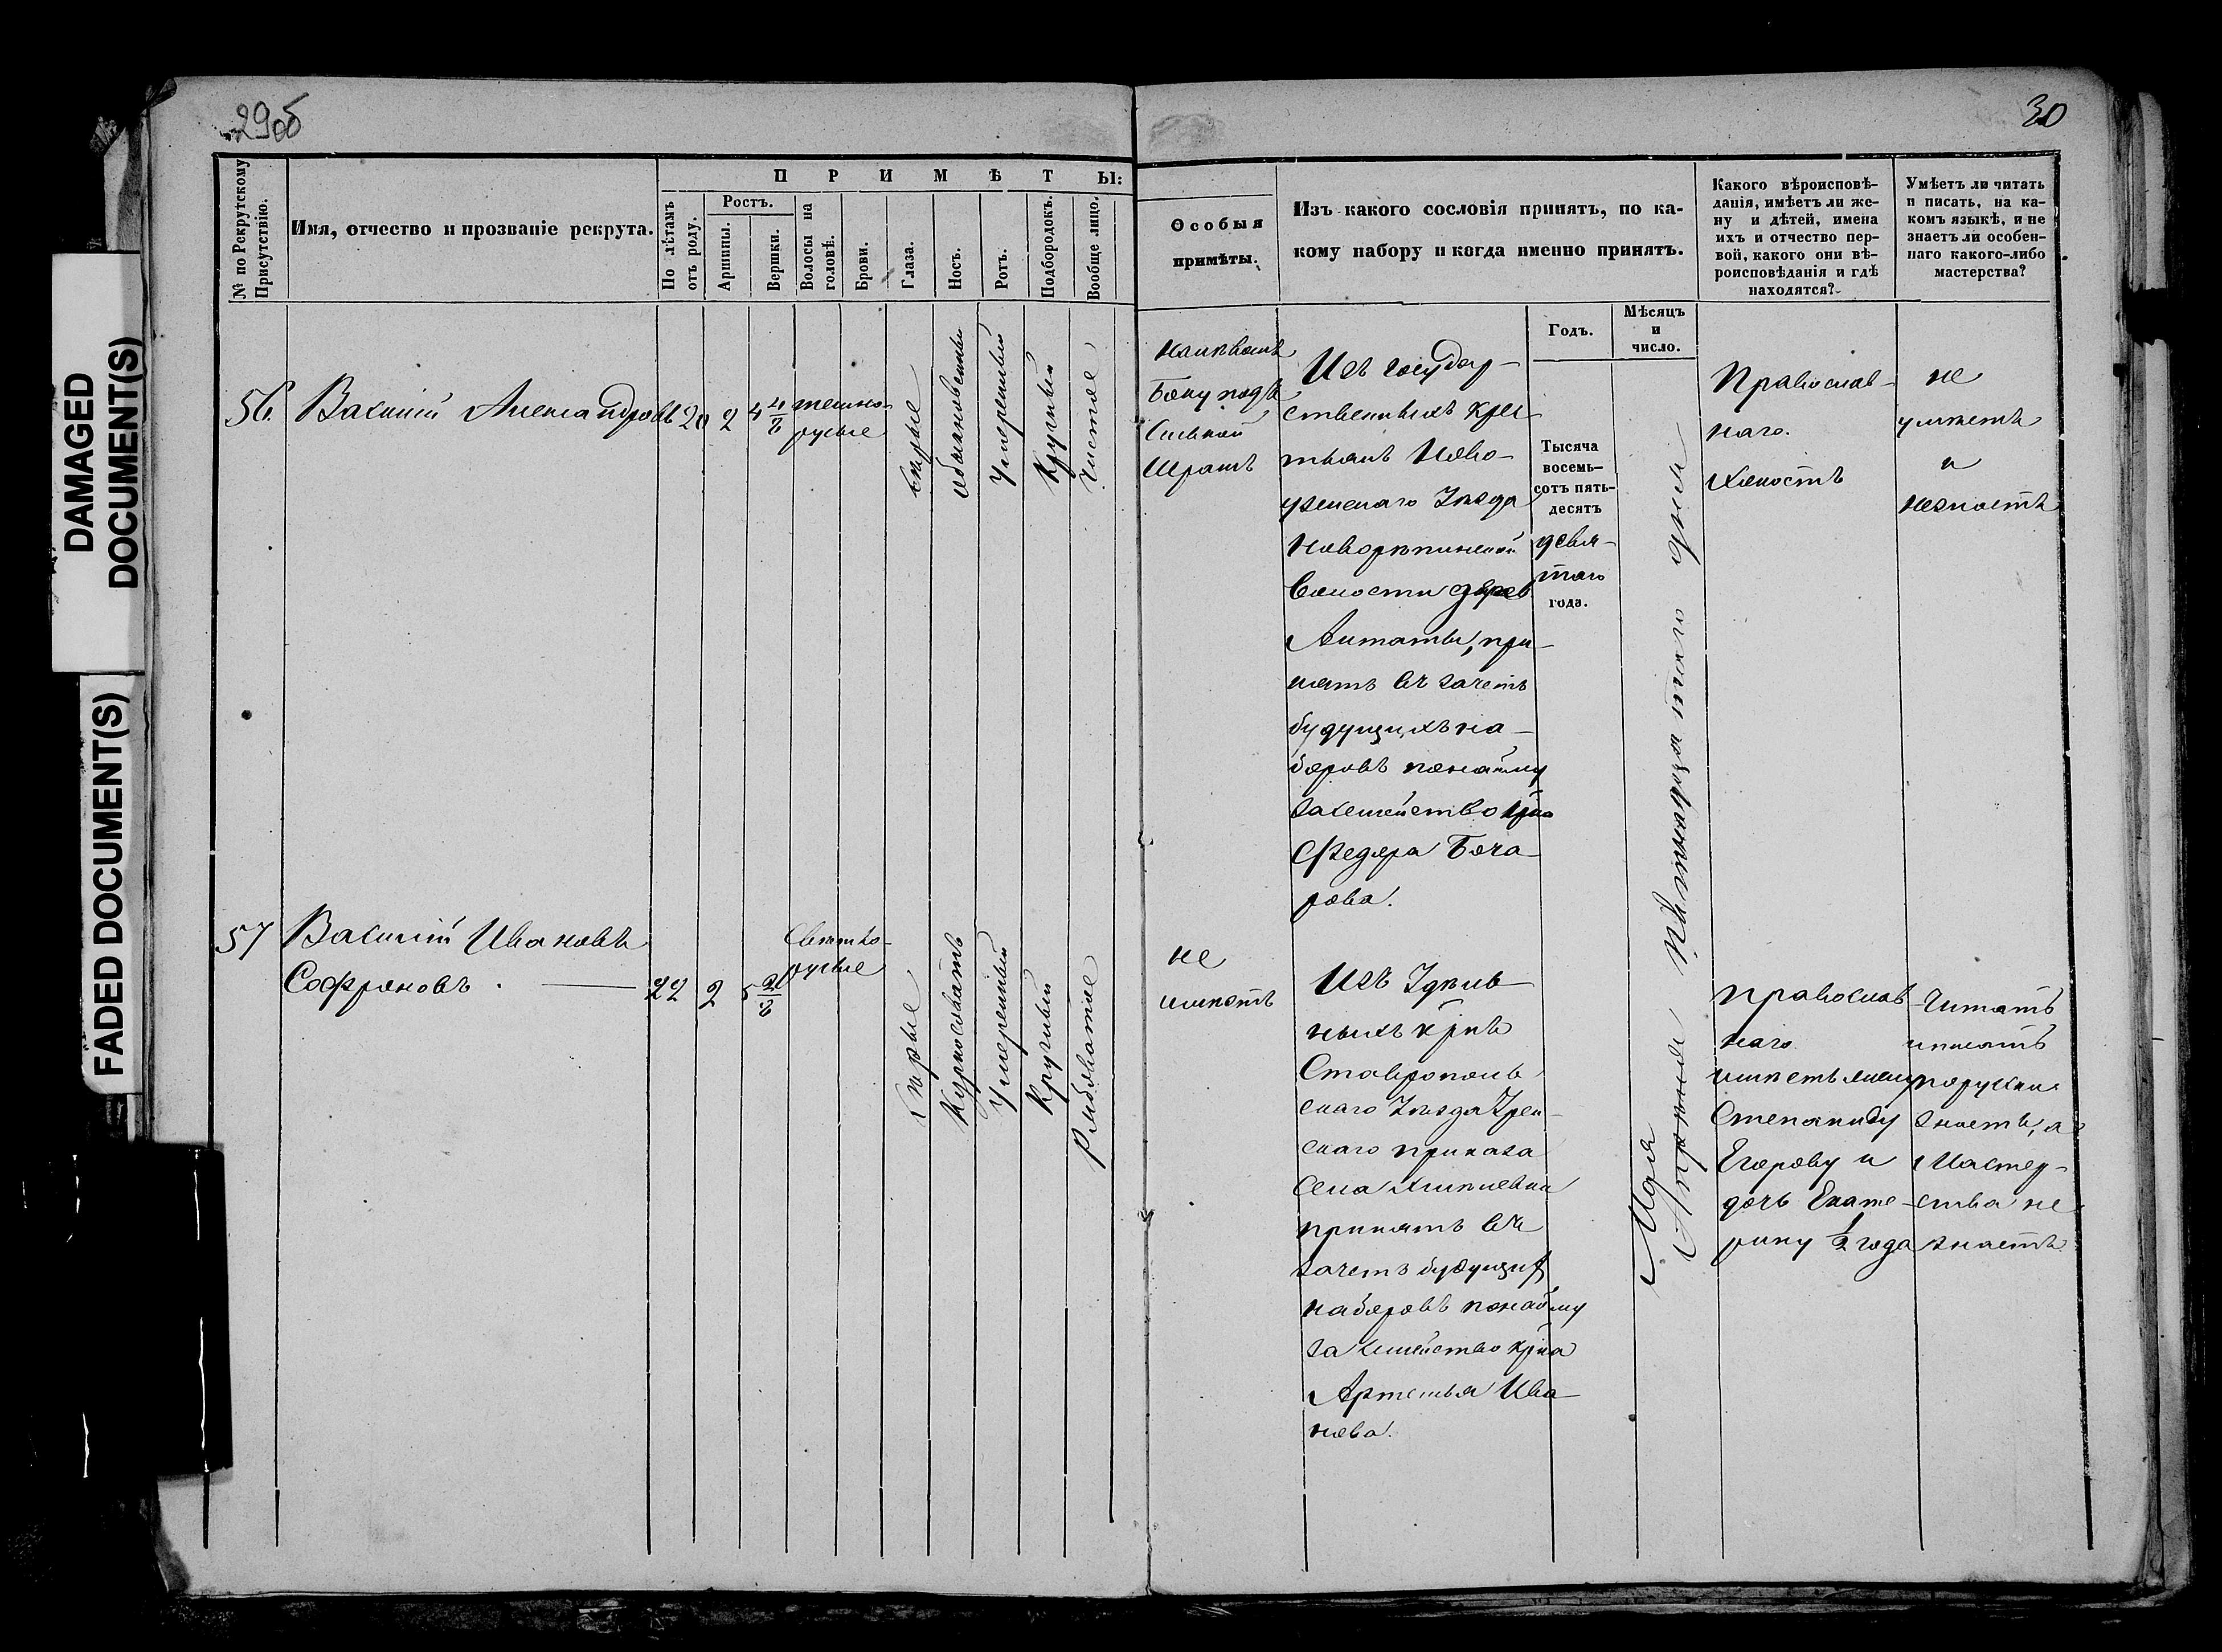 29об
30
DAMAGED
DOCUMENT(S)
FADED DOCUMENT(S)
№ по Рекрутскому
Присутствію.
Имя, отчество и прозваніе рекрута.
ПРИМѢТЫ:
По лѣтамъ
отъ роду.
Ростъ.
Аршины.
Вершки.
Волосы на
головѣ.
Брови.
Глаза.
Носъ.
Ротъ.
Подбородокъ.
Вообще лицо.
Особыя
примѣты.
Изъ какого сословія принятъ, по ка-
кому набору и когда именно принятъ.
Годъ.
Мѣсяцъ
и
число.
Какого вѣроисповѣ-
данія, имѣетъ ли же-
ну и дѣтей, имена
ихъ и отчество пер-
вой, какого они вѣ-
роисповѣданія и гдѣ
находятся?
Умѣетъ ли читать
и писать, на ка-
комъ языкѣ, и не
знаетъ ли особен-
наго какого-либо
мастерства?
56.
Василій Александровъ
20
2
4 4/8
темно-
русые
Сѣрые
обыкновенный
Умеренный
Круглый
Чистое
Боку подъ
Шрамъ
Изъ государ-
ственныхъ кре
тьянъ Ново-
узенскаго Уѣзда
Новорепинской
Волости дерев
Алтаты, при-
нятъ въ зачетъ
будущихъ на-
боровъ понайму
за семейство крна
Федора Боча-
рова.
Тысяча
восемь-
сотъ пять-
десятъ
девя-
таго
года.
Мая
Апрѣля
Пятнадцатаго дня
Православ-
наго.
Холостъ
не
умѣетъ
и
незнаетъ
57
Василій Ивановъ
Софроновъ.
22
2
5 2/8
Светло-
русые
Сѣрые
Курносоватъ
Умеренный
Круглый
Рябоватое
не
имѣетъ
Изъ Удѣль-
ныхъ крнъ
Ставрополь
скаго Уѣзда
скаго приказа
Села
принятъ въ
зачетъ будущих
наборовъ понайму
за семейство крна
Артемья Ива-
нова.
Православ
наго
имѣетъ жену
Степаниду
Егорову и
дочь Екате-
рину 1/2 года
Читать
иписать
порусски
знаетъ, а
Мастер-
ства не
знаетъ.